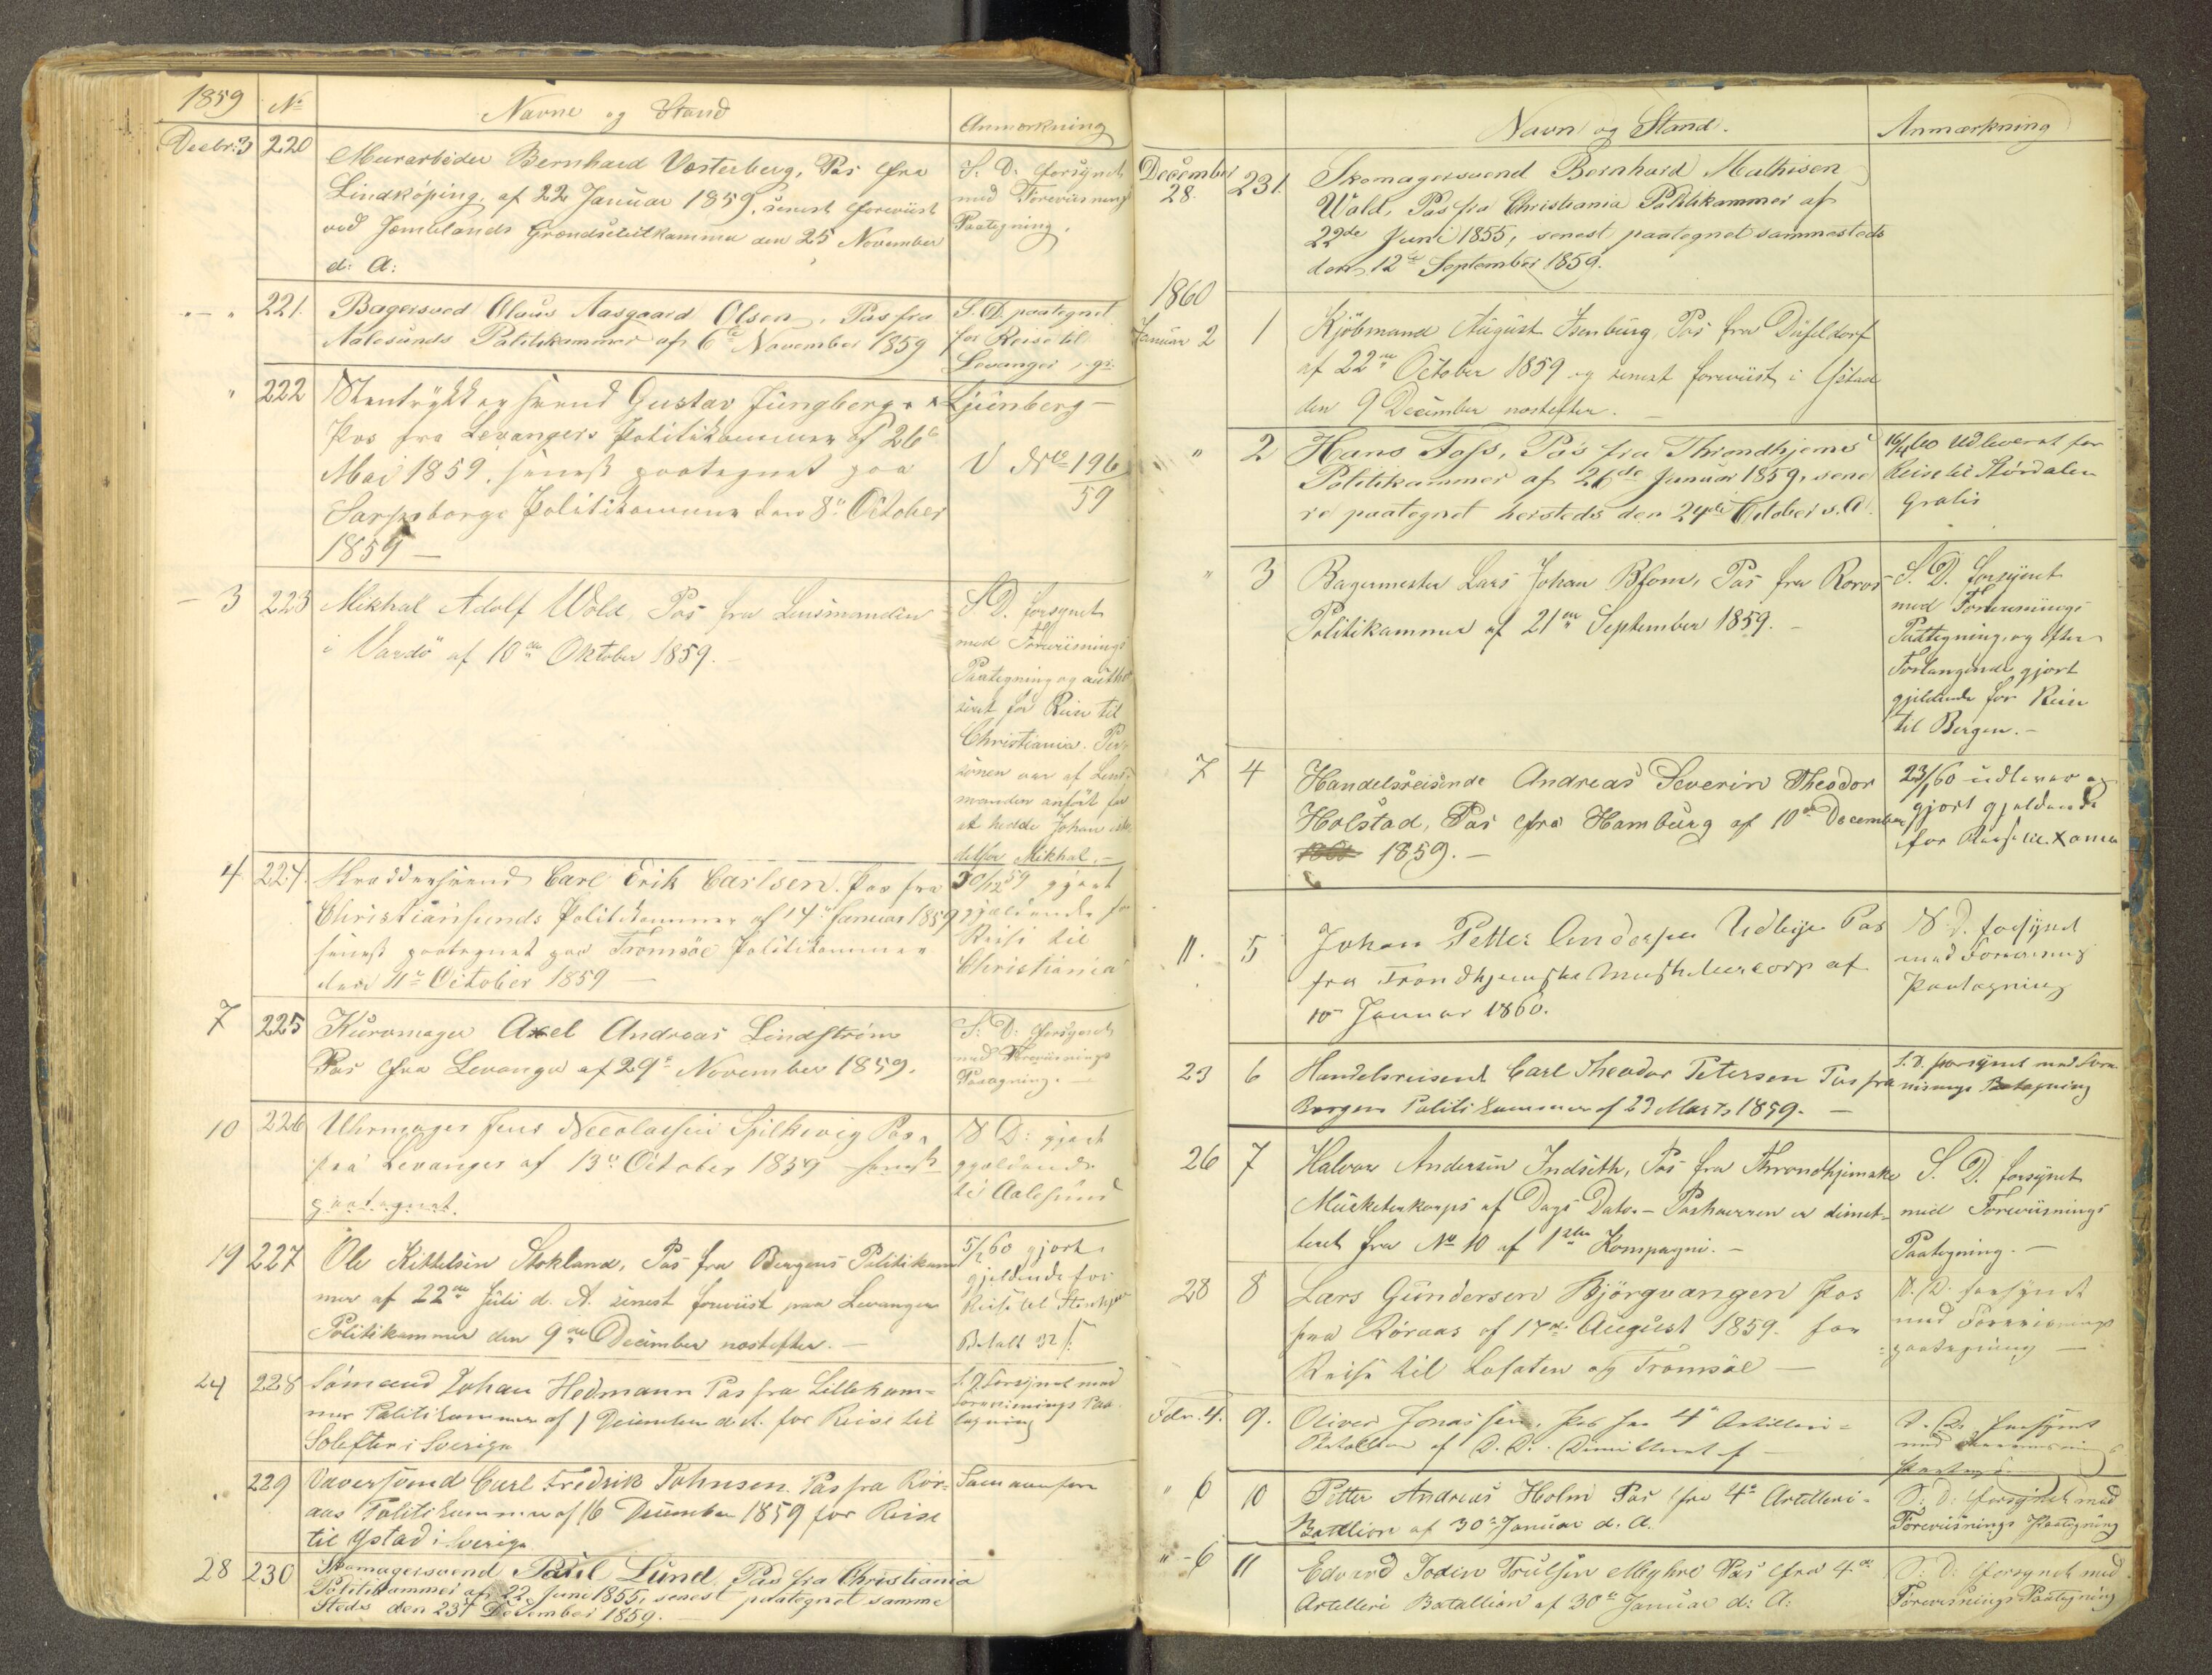 1859 No Navne og Stand Anmærkning
Decbr. 3 220 Murarbeider Bernhard Vesterberg, Pas fra
Lindköping, af 22 Januar 1859, senest foreviist
ved Jemtlands Grændsetoldkammer den 25 November
d: A:
S. D. forsynet
med Forevisnings
Paategning.
221. Bagersvend Olaus Aasgaard Olsen, Pas fra
Aalesunds Politikammer af 6te November 1859
S. D. paategnet
for Reise til
Levanger, gr.
222 Stentrykkersvend Gustav Jüngberg
Pas fra Levangers Politikammer af 26de
Mai 1859, senest paategnet paa
Sarpsborgs Politikammer den 8de October
1859 —
Ljünberg —
V No 196
59
3 223 Mikhal Adolf Wold, Pas fra Lensmanden
i Vardö af 10de Oktober 1859. —
S. D. forsynet
med Foreviisnings
Paategning og autho
riseret for Reise til
Christiania. Per-
sonen var af Lens-
manden anført for
at hedde Johan iste-
detfor Mikhal. —
4 224. Skræddersvend Carl Erik Carlsen. Pas fra
Christiansunds Politikammer af 14de Januar 1859
senest paategnet paa Tromsöe Politikammer
den 11te October 1859 —
30/12 59 gjort
gjældende for
Reise til
Christiania
7 225 Kurvmager Axel Andreas Lindström
Pas fra Levanger af 29de November 1859.
S: D: forsynet
med Foreviisnings
Paategning. —
10 226 Uhrmager Jens Nicolaisen Spilkevig Pas
fra Levanger af 13de October 1859 senest
paategnet.
S D: gjort
gjældende
til Aalesund
19 227 Ole Kittelsen Stokland, Pas fra Bergens Politikam
mer af 22de Juli d. A. senest foreviist paa Levanger
Politikammer den 9de December næstefter. —
5/1 60 gjort
gjeldende for
Reise til Stenkjær
Betalt 32 ſ.
24 228 Sömand Johan Hedmann Pas fra Lilleham-
mer Politikammer af 1 December d. A. for Reise til
Solefter i Sverige
S. D. forsynet med
Forevisnings Paa
tegning
229 Væversvend Carl Fredrik Johnsen. Pas fra Rör-
aas Politikammer af 16 December 1859 for Reise
til Ystad i Sverige
Som ovenfor
28 230 Skomagersvend Paul Lund, Pas fra Christiania
Politikammer af 22 Juni 1855, senest paategnet samme
Steds den 23de December 1859. —
Navn og Stand. Anmærkning
December
28. 231. Skomagersvend Bernhard Mathisen
Wald, Pas fra Christiania Politikammer af
22de Juni 1855, senest paategnet sammesteds
den 12te September 1859.
1860
Januar 2 1 Kjöbmand August Isenburg, Pas fra Düsseldorf
af 22de October 1859 og senest foreviist i Ystad
den 9 December næstefter. —
" 2 Hans Foss, Pas fra Throndhjems
Politikammer af 26de Januar 1859, sene
re paategnet hersteds den 24de October s. A.
16/4 60 Udleveret for
Reise til Stördalen
Gratis
" 3 Bagermester Lars Johan Blom, Pas fra Roros
Politikammer af 21de September 1859. —
S. D. forsynet
med Foreviisnings
Paategning, og efter
Forlangende gjort
gjeldende for Reise
til Bergen. —
7 4 Handelsreisende Andreas Severin Theodor
Holstad, Pas fra Hamburg af 10de December
1859. —
23/1 60 udlever og
gjort gjeldende
for Reise til Xania
11. 5 Johan Petter Andersen Udbye Pas
fra Trondhjemske Musketeercorps af
10de Januar 1860.
S. D. forsynet
med Forevisnings
Paategning
23 6 Handelsreisend Carl Theodor Petersen Pas fra
Bergens Politikammer af 23 Marts 1859. —
S. D. forsynet med Fore
visnings Paategning
26 7 Halvor Andersen Indseth, Pas fra Throndhjemske
Musketerkorps af Dags Dato. — Pashaveren er dimit-
teret fra No 10 af 1ste Kompagni. —
S. D. forsynet
med Foreviisnings
Paategning. —
28 8 Lars Gundersen Bjørgvangen Pas
fra Röraas af 17de August 1859. for
Reise til Lofoten og Tromsöe —
S. D. forsynet
med Forevisnings
paategning —
Febr. 4. 9. Oliver Jonassen, Pas fra 4de Artilleri-
Batallion af D. D. Dimitteret
S. D. forsynet
med Forevisnings
Paategning
" 6 10 Petter Andreas Holm Pas fra 4de Artilleri-
Batallion af 30te Januar d. A.
S: D: forsynet med
Foreviisnings Paategning
" - 6 11 Edvard Truelsen Myhre Pas fra 4de
Artilleri Batallion af 30te Januar d: A:
S: D: forsynet med
Foreviisnings Paategning